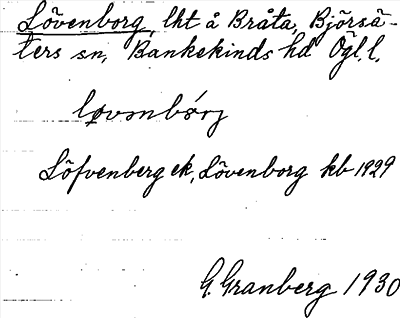 Lövenborg, lht å Bråta, Björsä-
ters sn, Bankekinds hd Ögl. l.
Löfvenberg ek, Lövenborg kb 1929
G. Granberg 1930